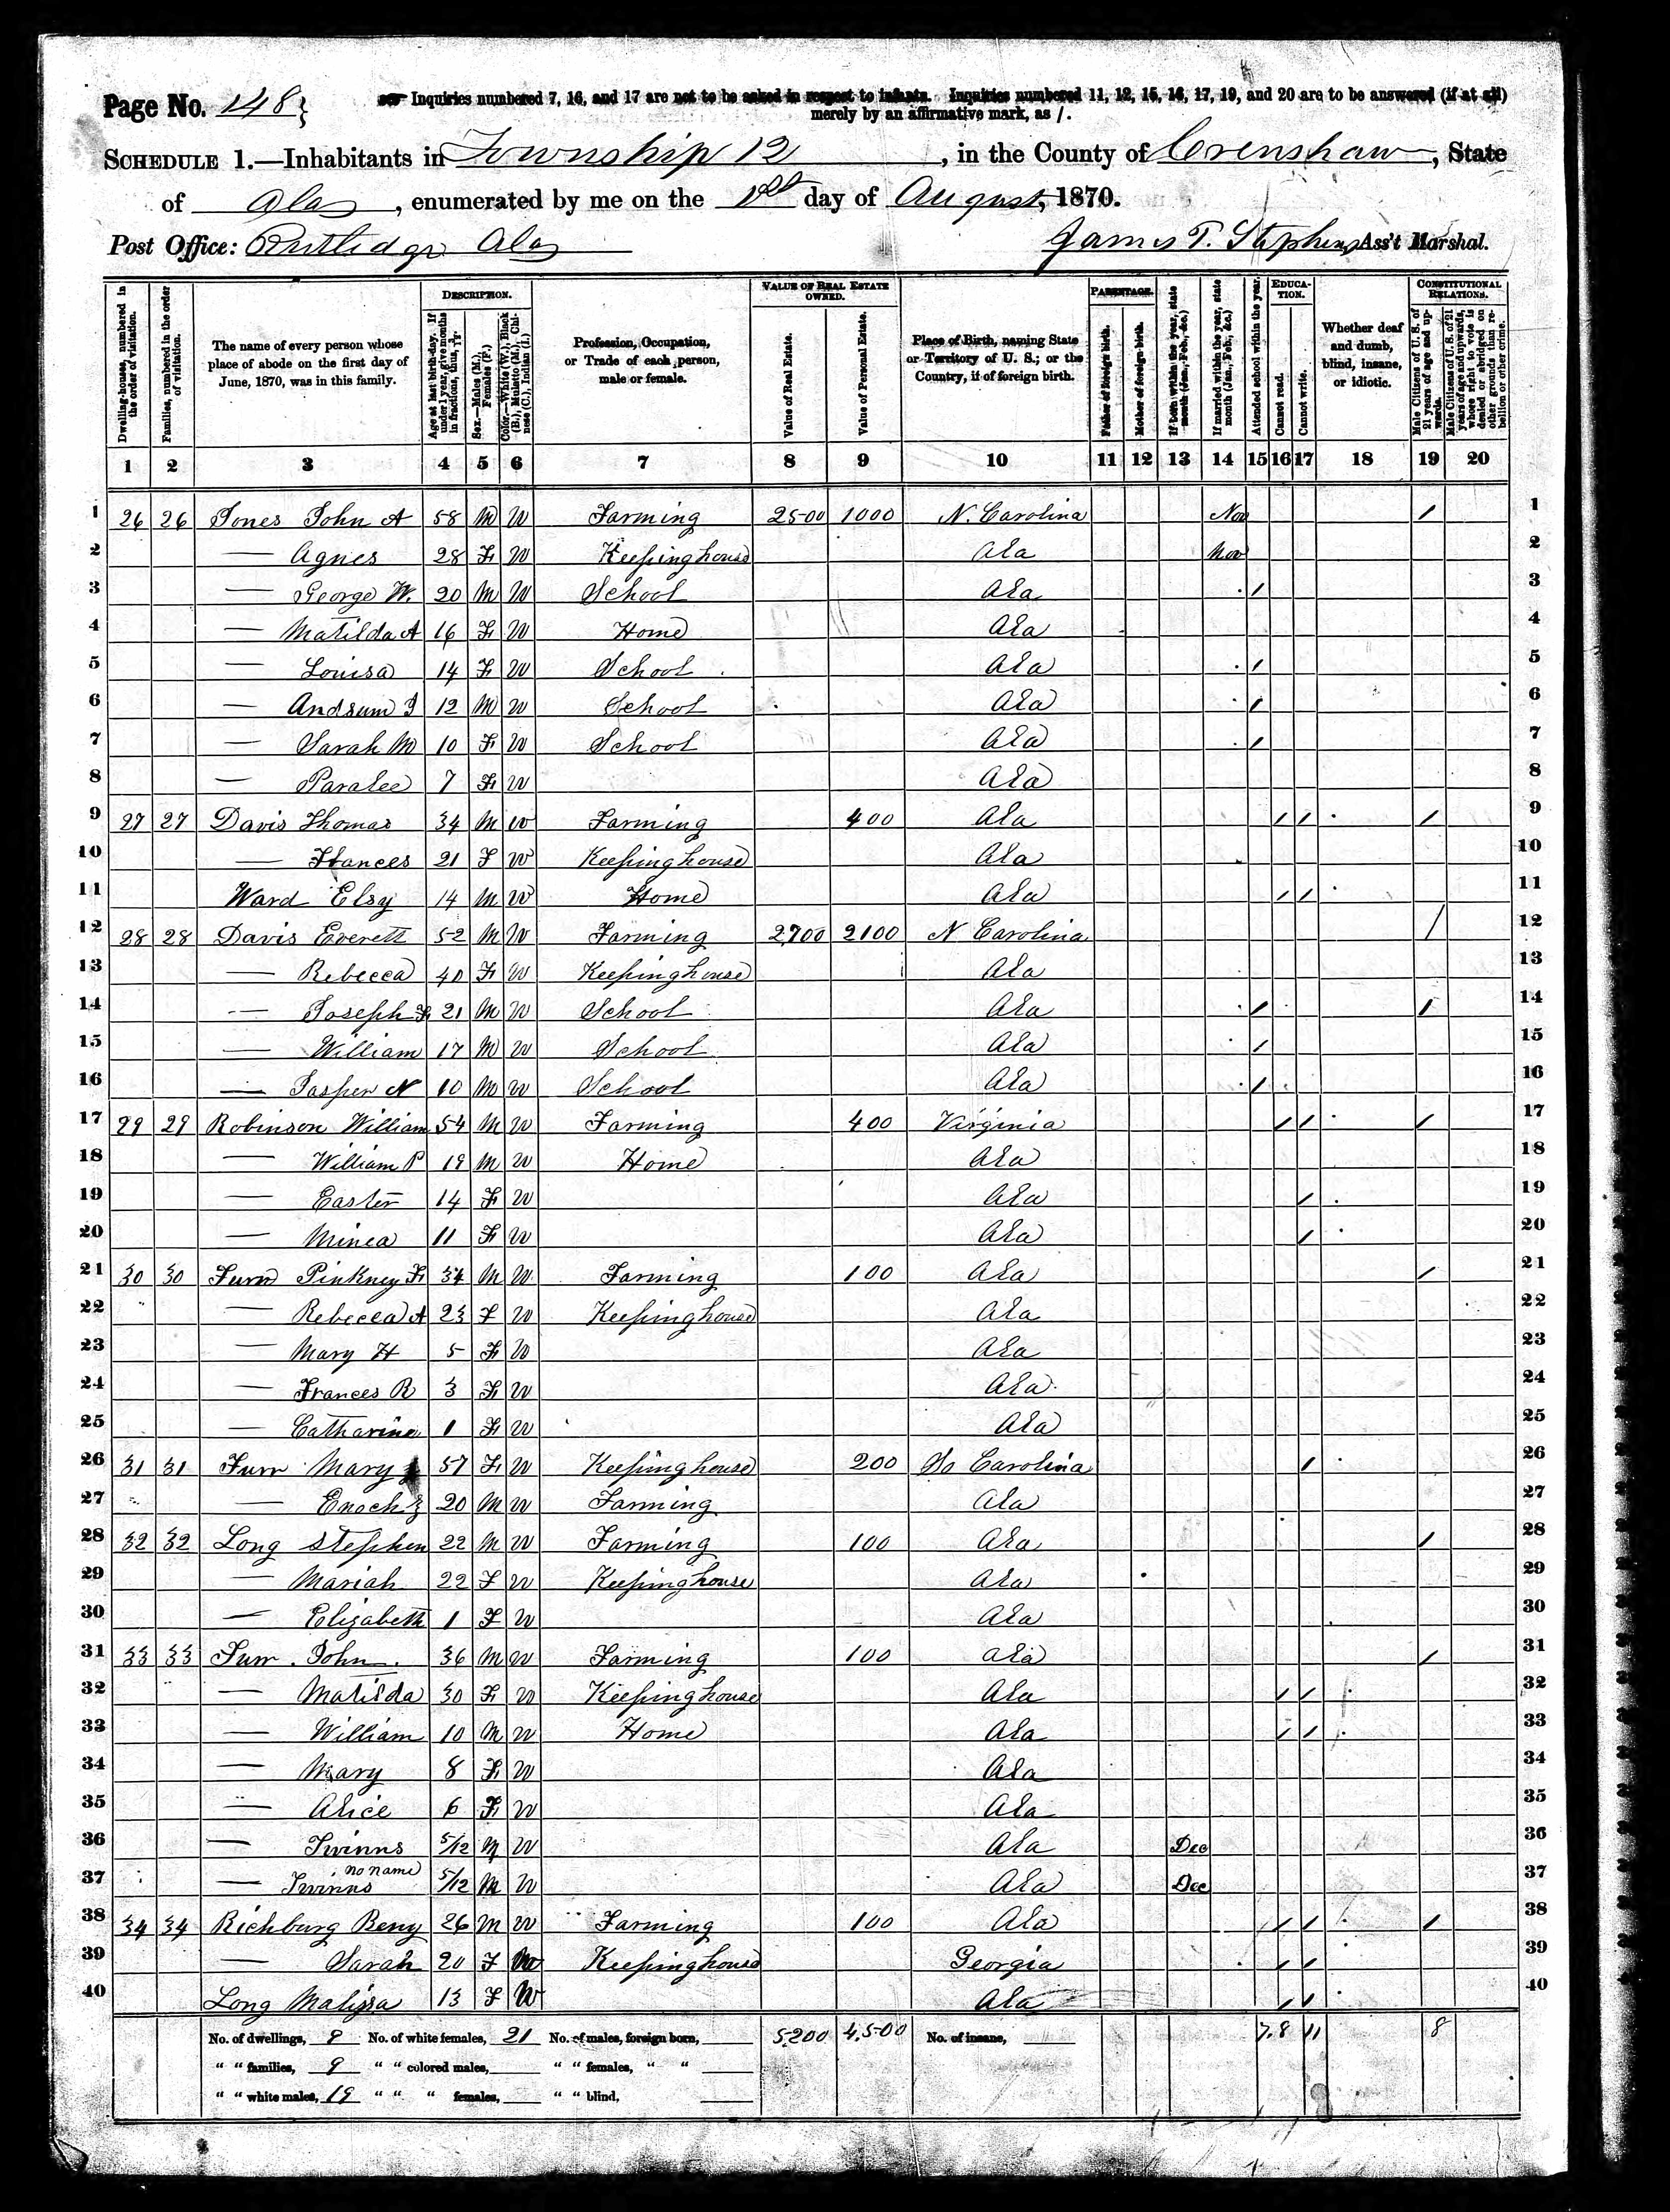 Page No. 148
Inquiries numbered 7, 16, and 17 are not to be asked in respect to infants. Inquiries numbered 11, 12, 15, 16, 17, 19, and 20 are to be answered (if at all)
merely by an affirmative mark, as /.
SCHEDULE 1.—Inhabitants in Township 12, in the County of Crenshaw, State
of Ala, enumerated by me on the 1st day of August, 1870.
Post Office: Rutledge Ala James T. Stephens, Ass't Marshal.
Dwelling-houses, numbered in the order of visitation.
Families, numbered in the order of visitation.
The name of every person whose place of abode on the first day of June, 1870, was in this family.
DESCRIPTION.
Age at last birth-day. If under 1 year, give months in fractions, thus, 3/12.
Sex.—Males (M.), Females (F.)
Color.—White (W.), Black (B.), Mulatto (M.), Chinese (C.), Indian (I.)
Profession, Occupation, or Trade of each person, male or female.
VALUE OF REAL ESTATE OWNED.
Value of Real Estate.
Value of Personal Estate.
Place of Birth, naming State or Territory of U. S.; or the Country, if of foreign birth.
PARENTAGE.
Father of foreign birth.
Mother of foreign birth.
If born within the year, state month (Jan., Feb., &c.)
If married within the year, state month (Jan., Feb., &c.)
Attended school within the year.
EDUCATION.
Cannot read.
Cannot write.
Whether deaf and dumb, blind, insane, or idiotic.
CONSTITUTIONAL RELATIONS.
Male Citizens of U. S. of 21 years of age and upwards.
Male Citizens of U. S. of 21 years of age and upwards, whose right to vote is denied or abridged on other grounds than rebellion or other crime.
1 2 3 4 5 6 7 8 9 10 11 12 13 14 15 16 17 18 19 20
1 26 26 Jones John A 58 M W Farming 2500 1000 N. Carolina Nov / 1
2 — Agnes 28 F W Keeping house Ala Nov 2
3 — George W. 20 M W School Ala / 3
4 — Matilda A 16 F W Home Ala 4
5 — Louisa 14 F W School Ala / 5
6 — Andsum J 12 M W School Ala / 6
7 — Sarah M 10 F W School Ala / 7
8 — Paralee 7 F W Ala 8
9 27 27 Davis Thomas 34 M W Farming 400 Ala / / / 9
10 — Frances 21 F W Keeping house Ala 10
11 Ward Elsy 14 M W Home Ala / / 11
12 28 28 Davis Everett 52 M W Farming 2700 2100 N Carolina / 12
13 — Rebecca 40 F W Keeping house Ala 13
14 — Joseph F 21 M W School Ala / / 14
15 — William 17 M W School Ala / 15
16 — Jasper N 10 M W School Ala / 16
17 29 29 Robinson William 54 M W Farming 400 Virginia / / / 17
18 — William P 19 M W Home Ala 18
19 — Easter 14 F W Ala / 19
20 — Minea 11 F W Ala / 20
21 30 30 Furr Pinkney F 34 M W Farming 100 Ala / 21
22 — Rebecca A 23 F W Keeping house Ala 22
23 — Mary H 5 F W Ala 23
24 — Frances R 3 F W Ala 24
25 — Catharine 1 F W Ala 25
26 31 31 Furr Mary 57 F W Keeping house 200 So Carolina / 26
27 — Enoch 20 M W Farming Ala 27
28 32 32 Long Stephen 22 M W Farming 100 Ala / 28
29 — Mariah 22 F W Keeping house Ala 29
30 — Elizabeth 1 F W Ala 30
31 33 33 Furr John 36 M W Farming 100 Ala / 31
32 — Matilda 30 F W Keeping house Ala / / 32
33 — William 10 M W Home Ala / / 33
34 — Mary 8 F W Ala 34
35 — Alice 6 F W Ala 35
36 — Twinns 5/12 M W Ala Dec 36
no name
37 — Twinns 5/12 M W Ala Dec 37
38 34 34 Richburg Beny 26 M W Farming 100 Ala / / / 38
39 — Sarah 20 F W Keeping house Georgia / / 39
40 Long Malissa 13 F W Ala / / 40
No. of dwellings, 8 No. of white females, 21 No. of males, foreign born, 5200 4,500 No. of insane, 7.8 11 8
" " families, 9 " " colored males, " " females, " "
" " white males, 19 " " " females, " " blind,